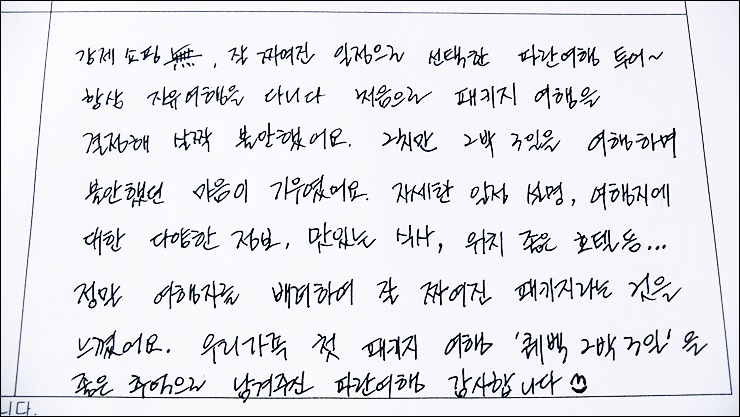 강제 쇼핑 無, 잘 짜여진 일정으로 선택한 파란여행 투어~
항상 자유여행을 다니다 처음으로 패키지 여행을
결정해 살짝 불안했어요. 하지만 2박 3일을 여행하며
불안했던 마음이 기우였어요. 자세한 일정 설명, 여행지에
대한 다양한 정보, 맛있는 식사, 위치 좋은 호텔 등...
정말 여행자를 배려하여 잘 짜여진 패키지라는 것을
느꼈어요. 우리가족 첫 패키지 여행 '퀘벡 2박 3일'을
좋은 추억으로 남겨주신 파란여행 감사합니다
니다.